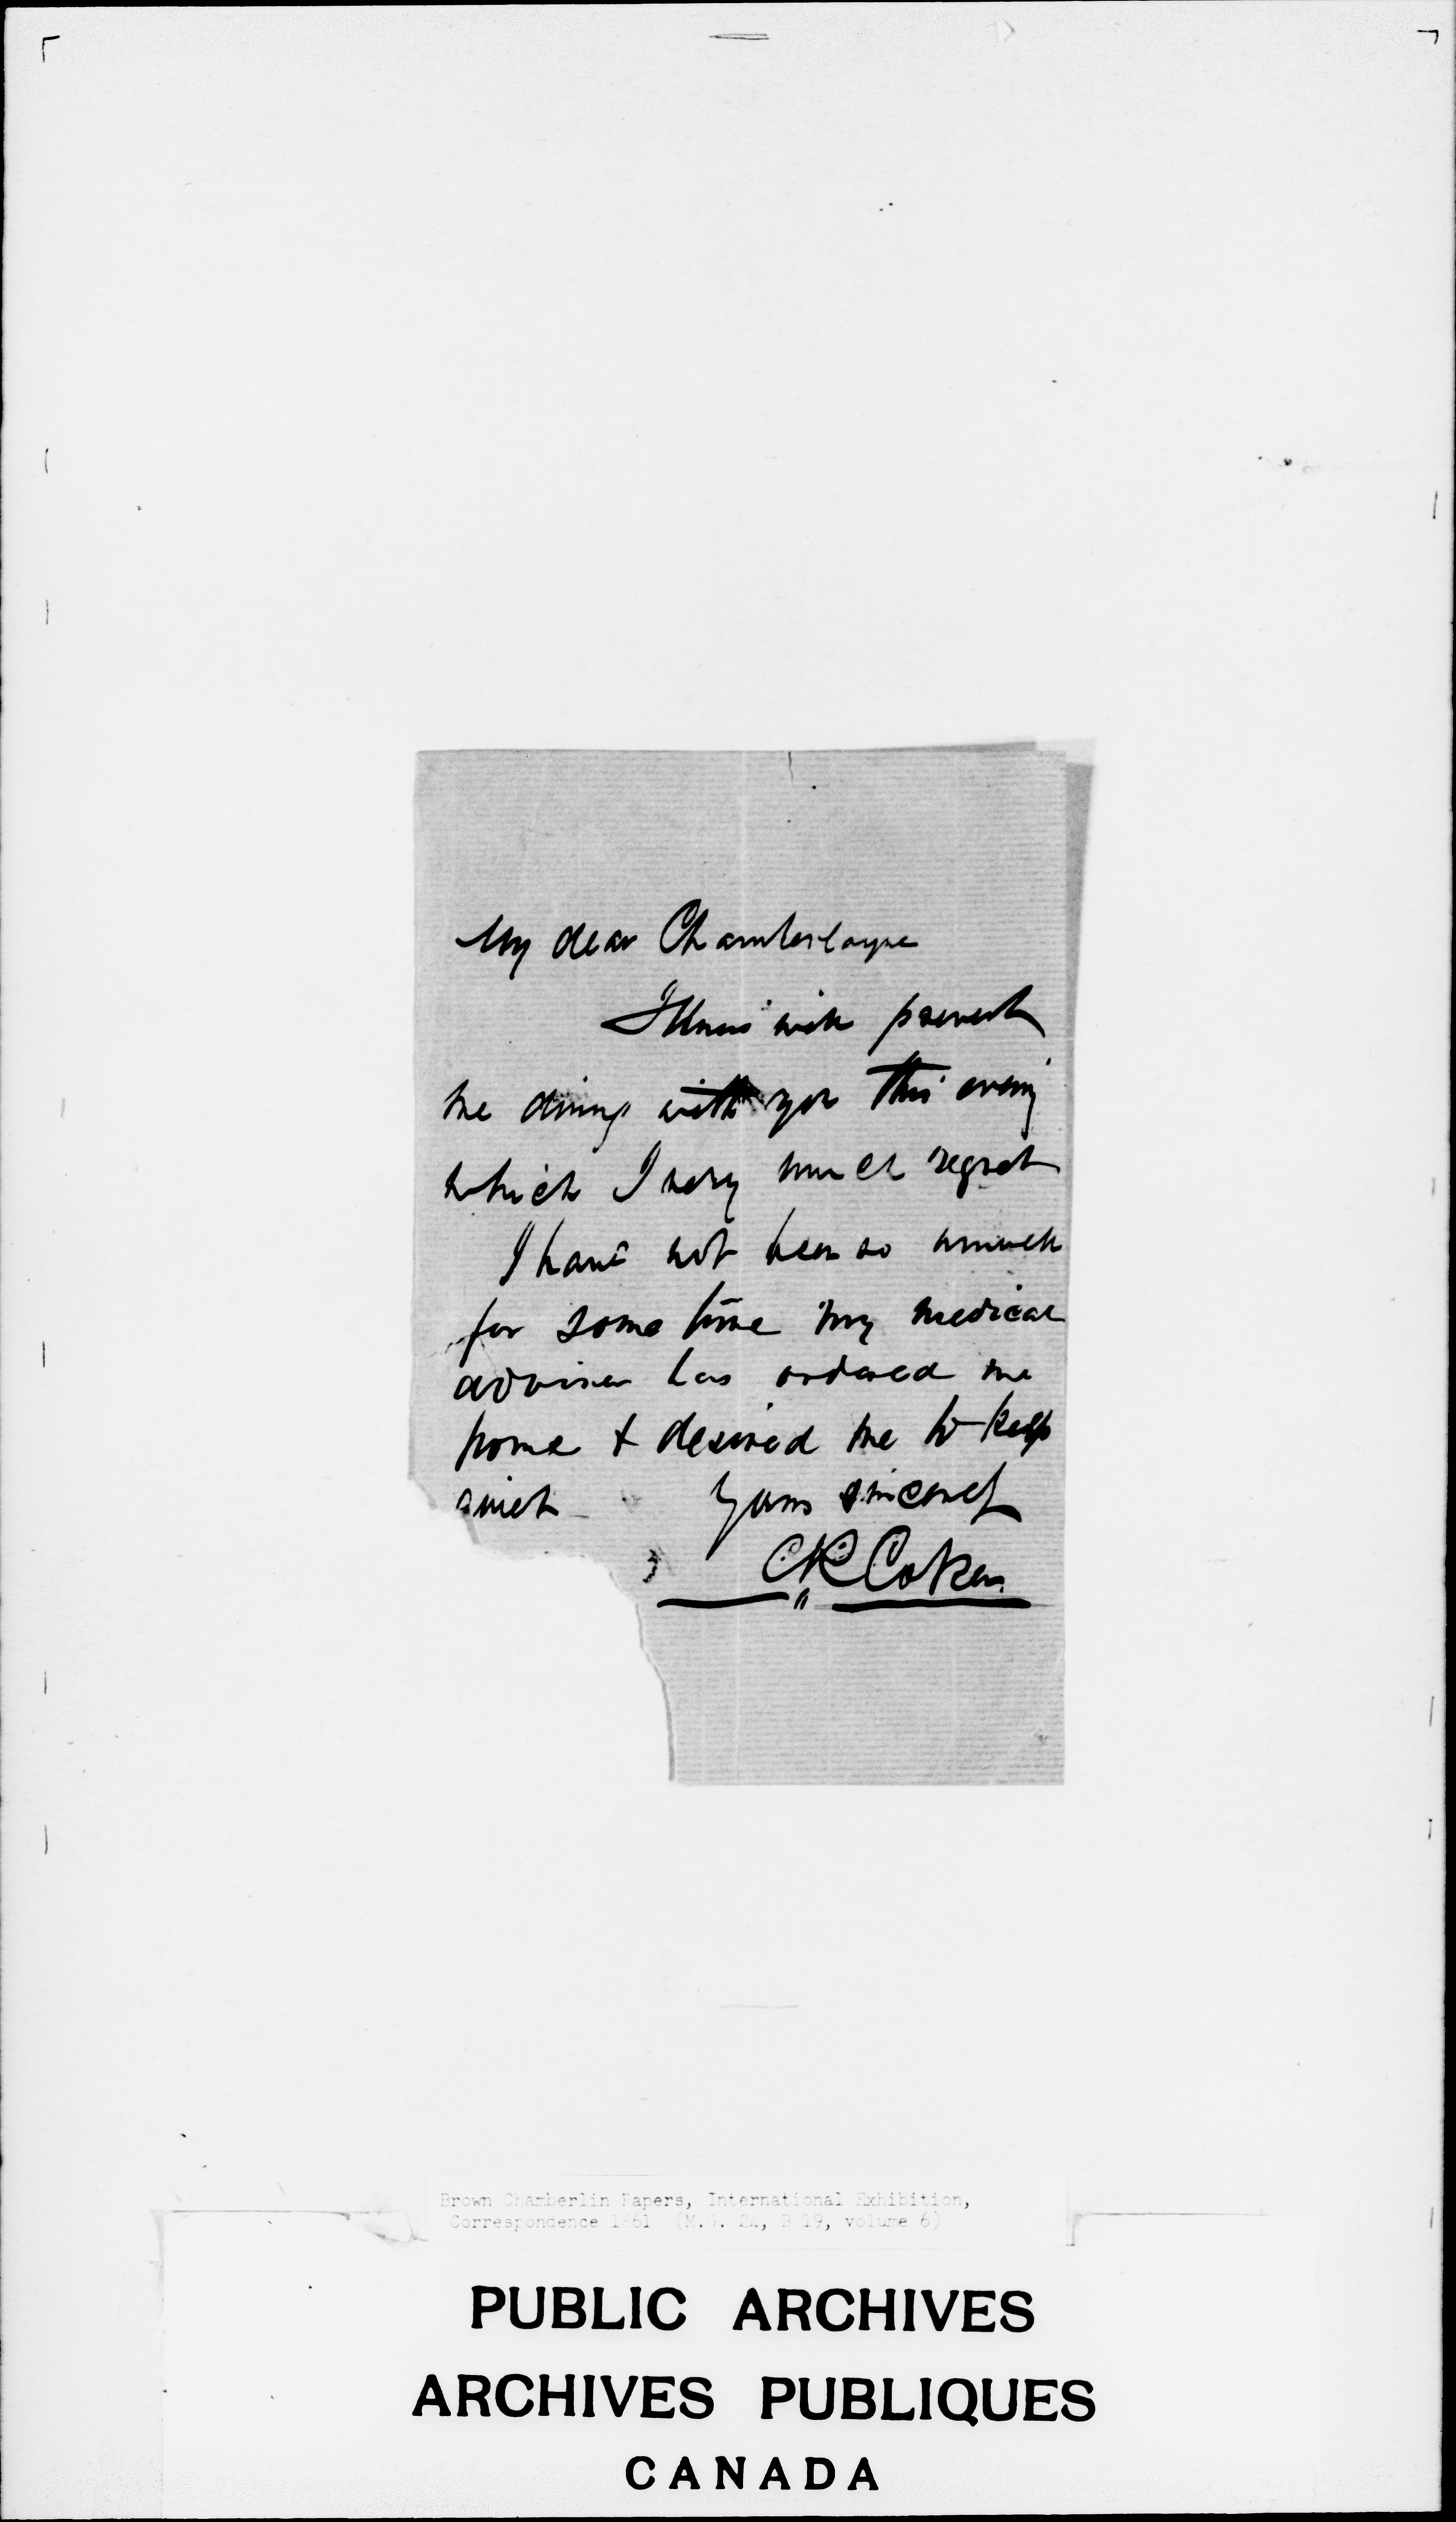 My dear Chamberlayne
Illness will prevent
me dining with you this evening
which I very much regret
I have not been so unwell
for some time my medical
adviser has ordered me
home & desired me to keep
quiet Yours sincerely
C. R. Coker
Brown Chamberlin Papers, International Exhibition,
Correspondence 1861 (M.G. 24, B 19, volume 6)
PUBLIC ARCHIVES
ARCHIVES PUBLIQUES
CANADA